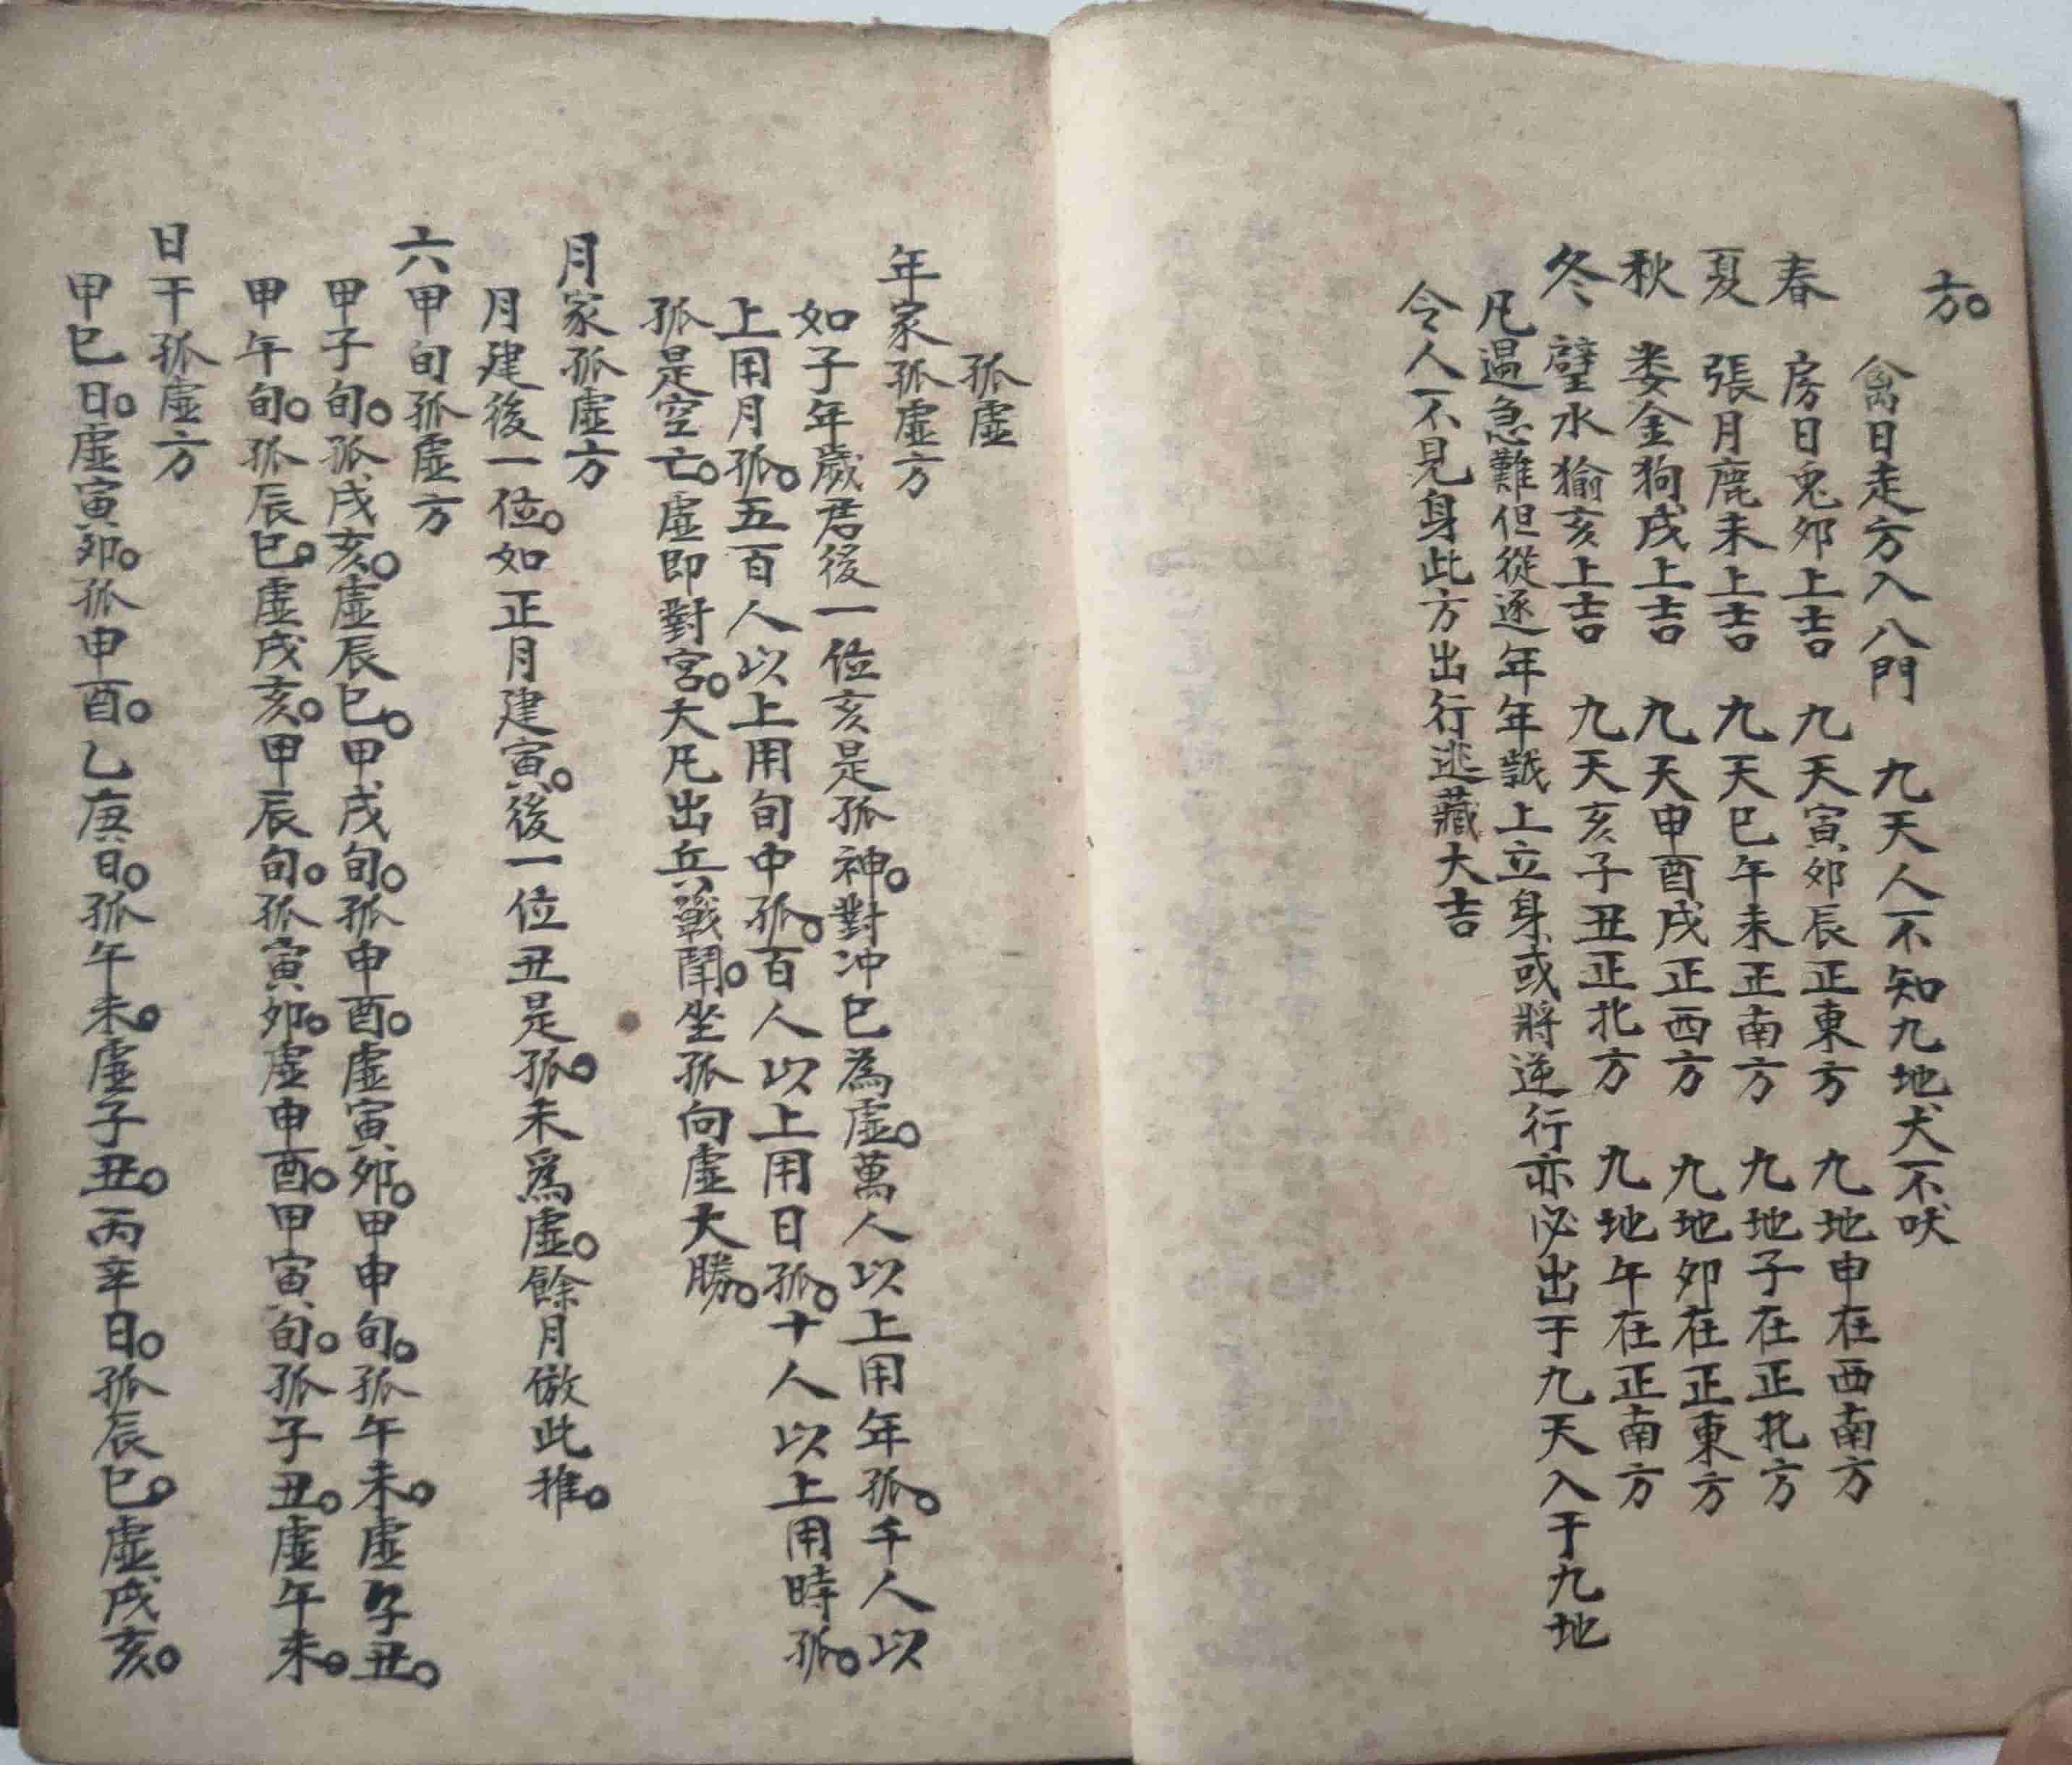 方。
禽日走方入八門　九天人不知九地犬不吠
春　房日兎夘上吉　九天寅夘辰正東方　九地申在西南方
夏　張月鹿未上吉　九天巳午未正南方　九地子在正北方
秋　娄金狗戌上吉　九天申酉戌正西方　九地夘在正東方
冬　壁水㺄亥上吉　九天亥子丑正北方　九地午在正南方
凡遇急難但從逐年年戥上立身或將逆行亦必出于九天入于九地
令人不見身此方出行逃藏大吉
孤虛
年家孤虛方
如子年歲君後一位亥是孤神。對冲巳為虛。萬人以上用年孤。千人以
上用月孤。五百人以上用旬中孤。百人以上用日孤。十人以上用時孤。
孤是空亡。虛即對宮。大凡出兵戰鬪。坐孤向虛大勝。
月家孤虛方
月建後一位。如正月建寅。後一位丑是孤。未爲虛。餘月倣此推。
六甲旬孤虛方
甲子旬。孤戌亥。虛辰巳。甲戌旬。孤申酉。虛寅夘。甲申旬。孤午未。虛子丑。
甲午旬。孤辰巳。虛戌亥。甲辰旬。孤寅夘。虛申酉。甲寅旬。孤子丑。虛午未。
日干孤虛方
甲巳日。虛寅夘。孤申酉。乙庚日。孤午未。虛子丑。丙辛日。孤辰巳。虛戌亥。